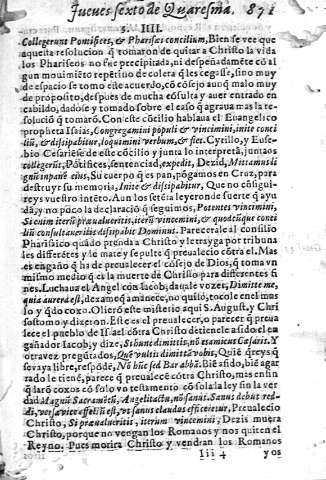 Jueves sexto de Quaresma. 871
§. IIII.
Collegerunt Pontifices, & Pharisei concilium, Bien se vee que
aquesta resolucion q̃ tomaron de quitar a Christo la vida
los Phariseos no fue precipitada, ni despeñadamẽte cõ al
gun mouimiẽto repẽtino de colera q̃ les cegasse, sino muy
de espacio se tomo este acuerdo, cõ cõsejo aunq̃ malo muy
de proposito, despues de mucha cõsulta y auer entrado en
cabildo, dadose y tomado sobre el caso q̃ agraua mas la re-
soluciõ q̃ tomarõ. Con este cõcilio hablaua el Euangelico
propheta Isaias, Congregamini populi & vincimini, inite conci
liũ, & dissipabitur, loquimini verbum, & fiet. Cyrillo, y Euse-
bio Cesariẽse de este cõcilio y junta lo interpretã, juntaos
collegerũt, Põtifices, sentenciad, expedit, Dezid, Mittamus li
gnũ in panẽ eius, Su cuerpo q̃ es pan, põgamos en Cruz, para
destruyr su memoria, Inite & dissipabitur, Que no cõsigui-
reys vuestro intẽto. Aun los setẽta leyeron de suerte q̃ ayu
da, y no poco la declaraciõ q̃ seguimos, Potentes vincimini,
Si enim iterũ præualueritis, iterũ vincemini, & quodcũque conci
liũ consultaueritis dissipabit Dominus. Parecerale al consilio
Pharisaico quãdo prenda a Christo y le trayga por tribuna
les differẽtes y le mate y sepulte q̃ preualecio cõtra el. Mas
es engaño q̃ ha de preualecer el cõsejo de Dios, q̃ toma vn
mismo medio q̃ es la muerte de Christo para differentes fi
nes. Luchaua el Angel con Iacob, dauale vozes, Dimitte me,
quia aurora est, dexame q̃ amanece, no quiso, tocole en el mus
lo y q̃do coxo. Olierõ este misterio aqui S. August. y Chri
sostomo y dizeron. Este es el preualecer, o parecer q̃ preua
lece el pueblo de Israel cõtra Christo detienele asido el en
gañador Iacob, y dize, Si hunc dimittis, nõ es amicus Cæsaris. Y
otra vez pregũtados, Quẽ vultis dimittã vobis, Quiẽ q̃reys q̃
se vaya libre, respõde, Nõ hũc sed Barabbã. Biẽ asido, biẽ agar
rado le tiene, parece q̃ preualece cõtra Christo, mas en fin
q̃ laro coxos cõ solo vn testamento cõ sola la ley sin la ver
dad
Christo, Si præualueritis, iterum vincemini, Dezis muera
Christo, porque no vengan los Romanos y nos quiten el
Reyno. Pues morira Christo y vendran los Romanos
Iii 4 y os